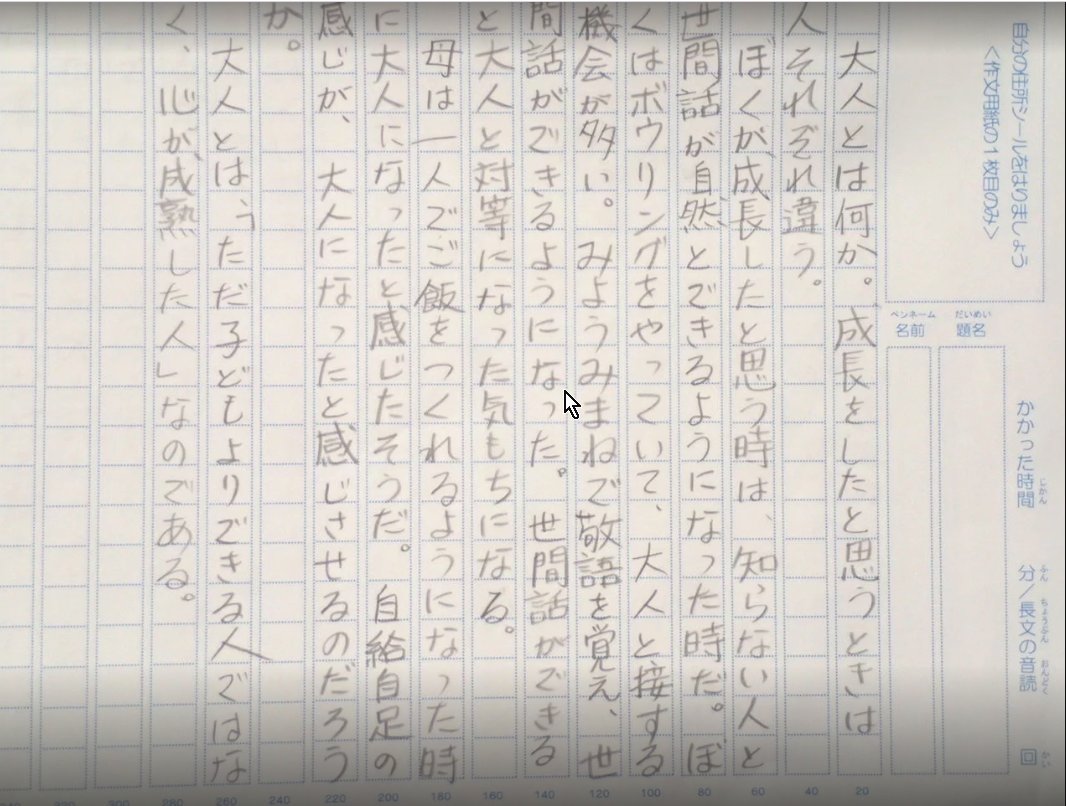 自分の住所シールをはりましょう
<作文用紙の1枚目のみ>
だいめい
題名
ペンネーム
名前
かかった時間
じかん
分/長文の音読
ふん
ちょうぶん
おんどく
回
かい
大人とは何か。成長をしたと思うときは
人それぞれ違う。
ぼくが、成長したと思う時は、知らない人と
世間話が自然とできるようになった時だ。ぼ
くはボウリングをやっていて、大人と接する
機会が多い。みようみまねで敬語を覚え、世
間話ができるようになった。世間話ができる
と大人と対等になった気もちになる。
母は一人でご飯をつくれるようになった時
に大人になったと感じたそうだ。自給自足の
感じが、大人になったと感じさせるのだろう
か。
大人とは、「ただ子どもよりできる人ではな
く、心が、成熟した人」なのである。
20
40
60
80
100
120
140
160
180
200
220
240
260
280
300
320